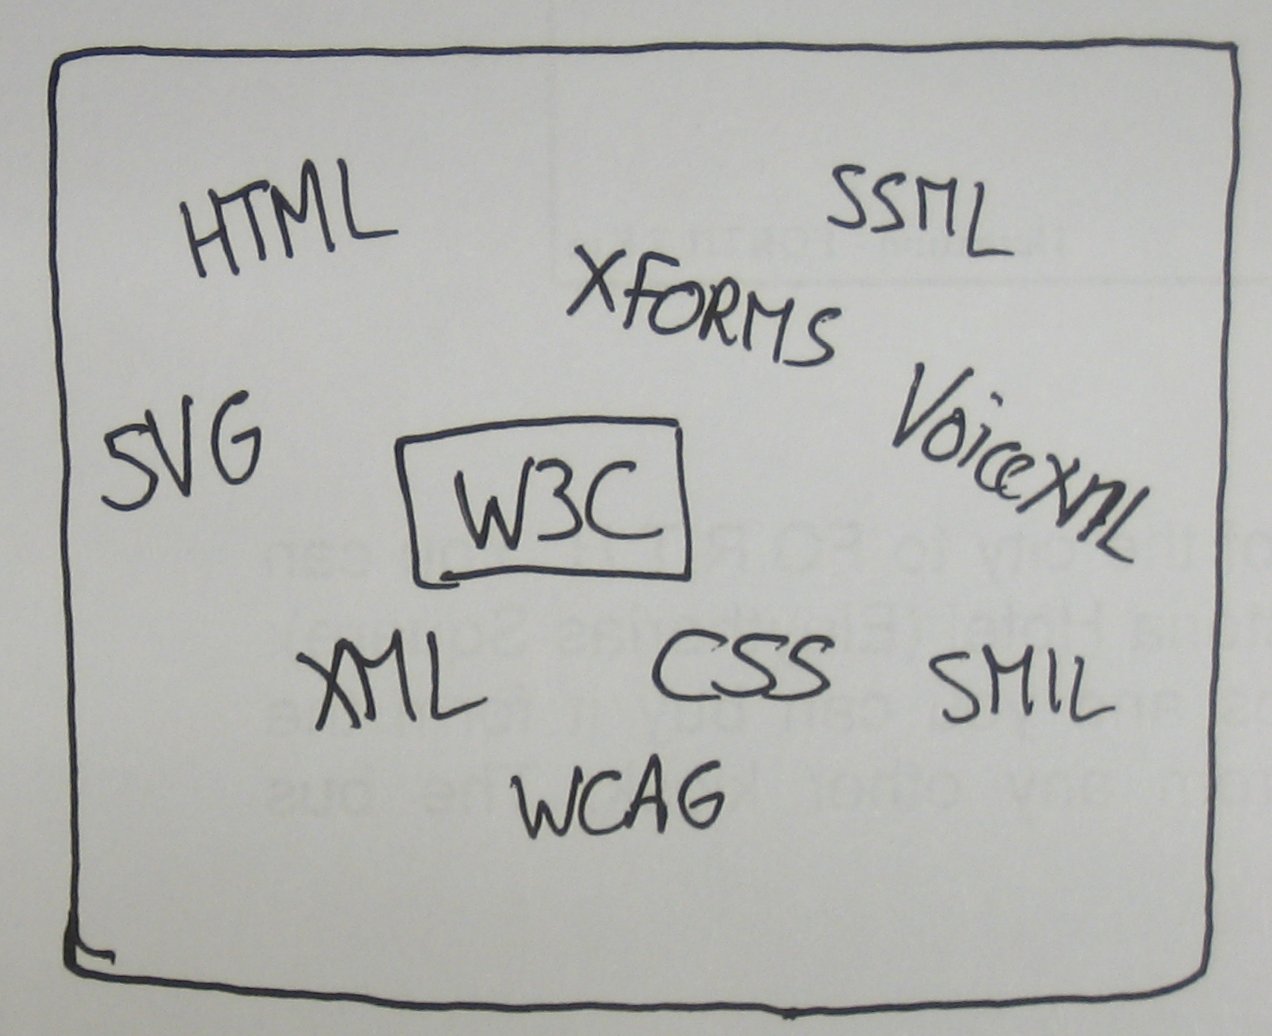 HTML
SSML
XFORMS
VoiceXML
SVG
W3C
XML
CSS
SMIL
WCAG